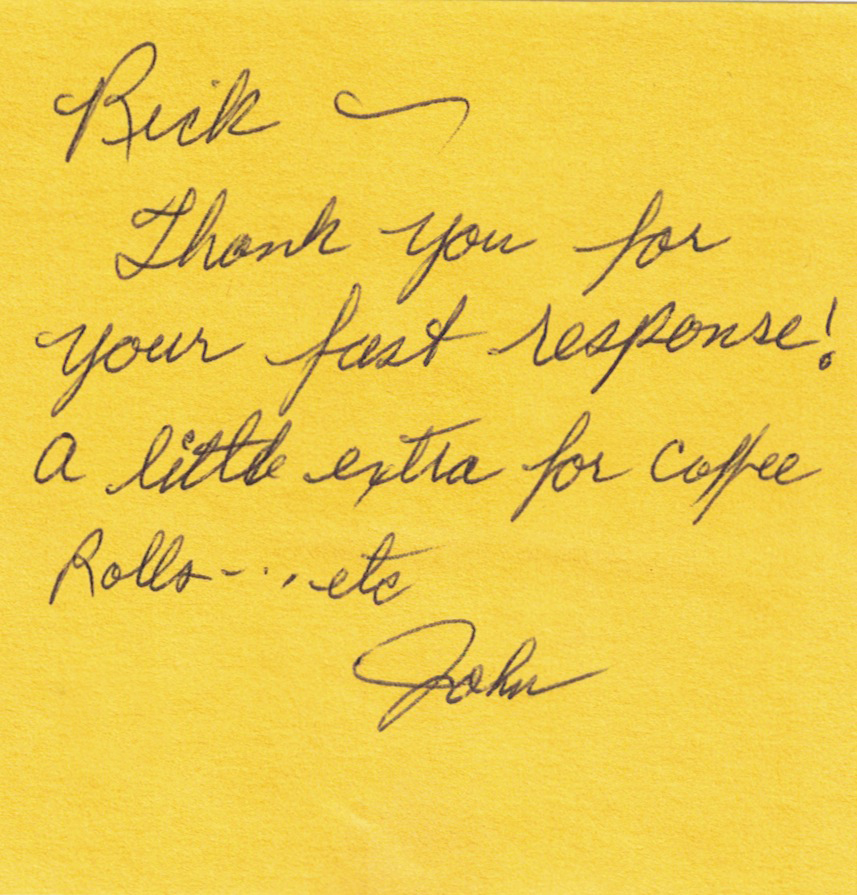 Rick ~
Thank you for
your fast response!
A little extra for coffee
Rolls--...etc
John